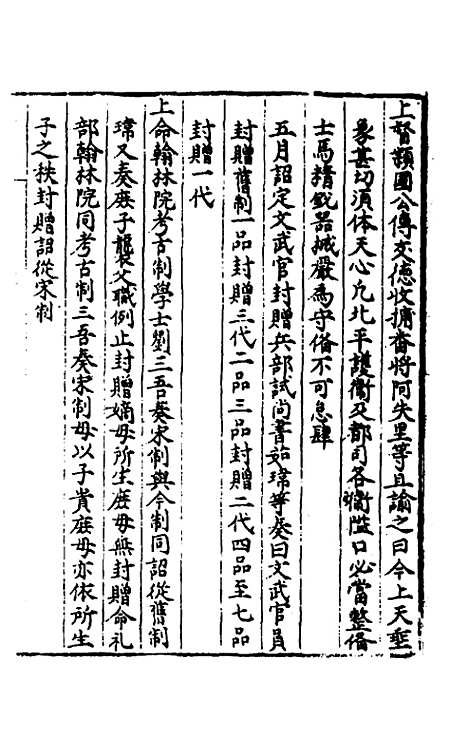 上督頴國公傅友德收捕番將阿失里等且諭之曰今上天垂
象甚切須体天心凢北平護衛及都司各衛隘口必當整俻
士馬精銳器械嚴為守俻不可怠肆
五月詔定文武官封贈兵部試尚書茹瑺等奏曰文武官員
封贈舊制一品封贈三代二品三品封贈二代四品至七品
封贈一代
上命翰林院考古制學士劉三吾奏宋制與今制同詔從舊制
瑺又奏庶子襲父職例止封贈嫡母所生庶母無封贈命礼
部翰林院同考古制三吾奏宋制母以子貴庶母亦依所生
子之秩封贈詔從宋制